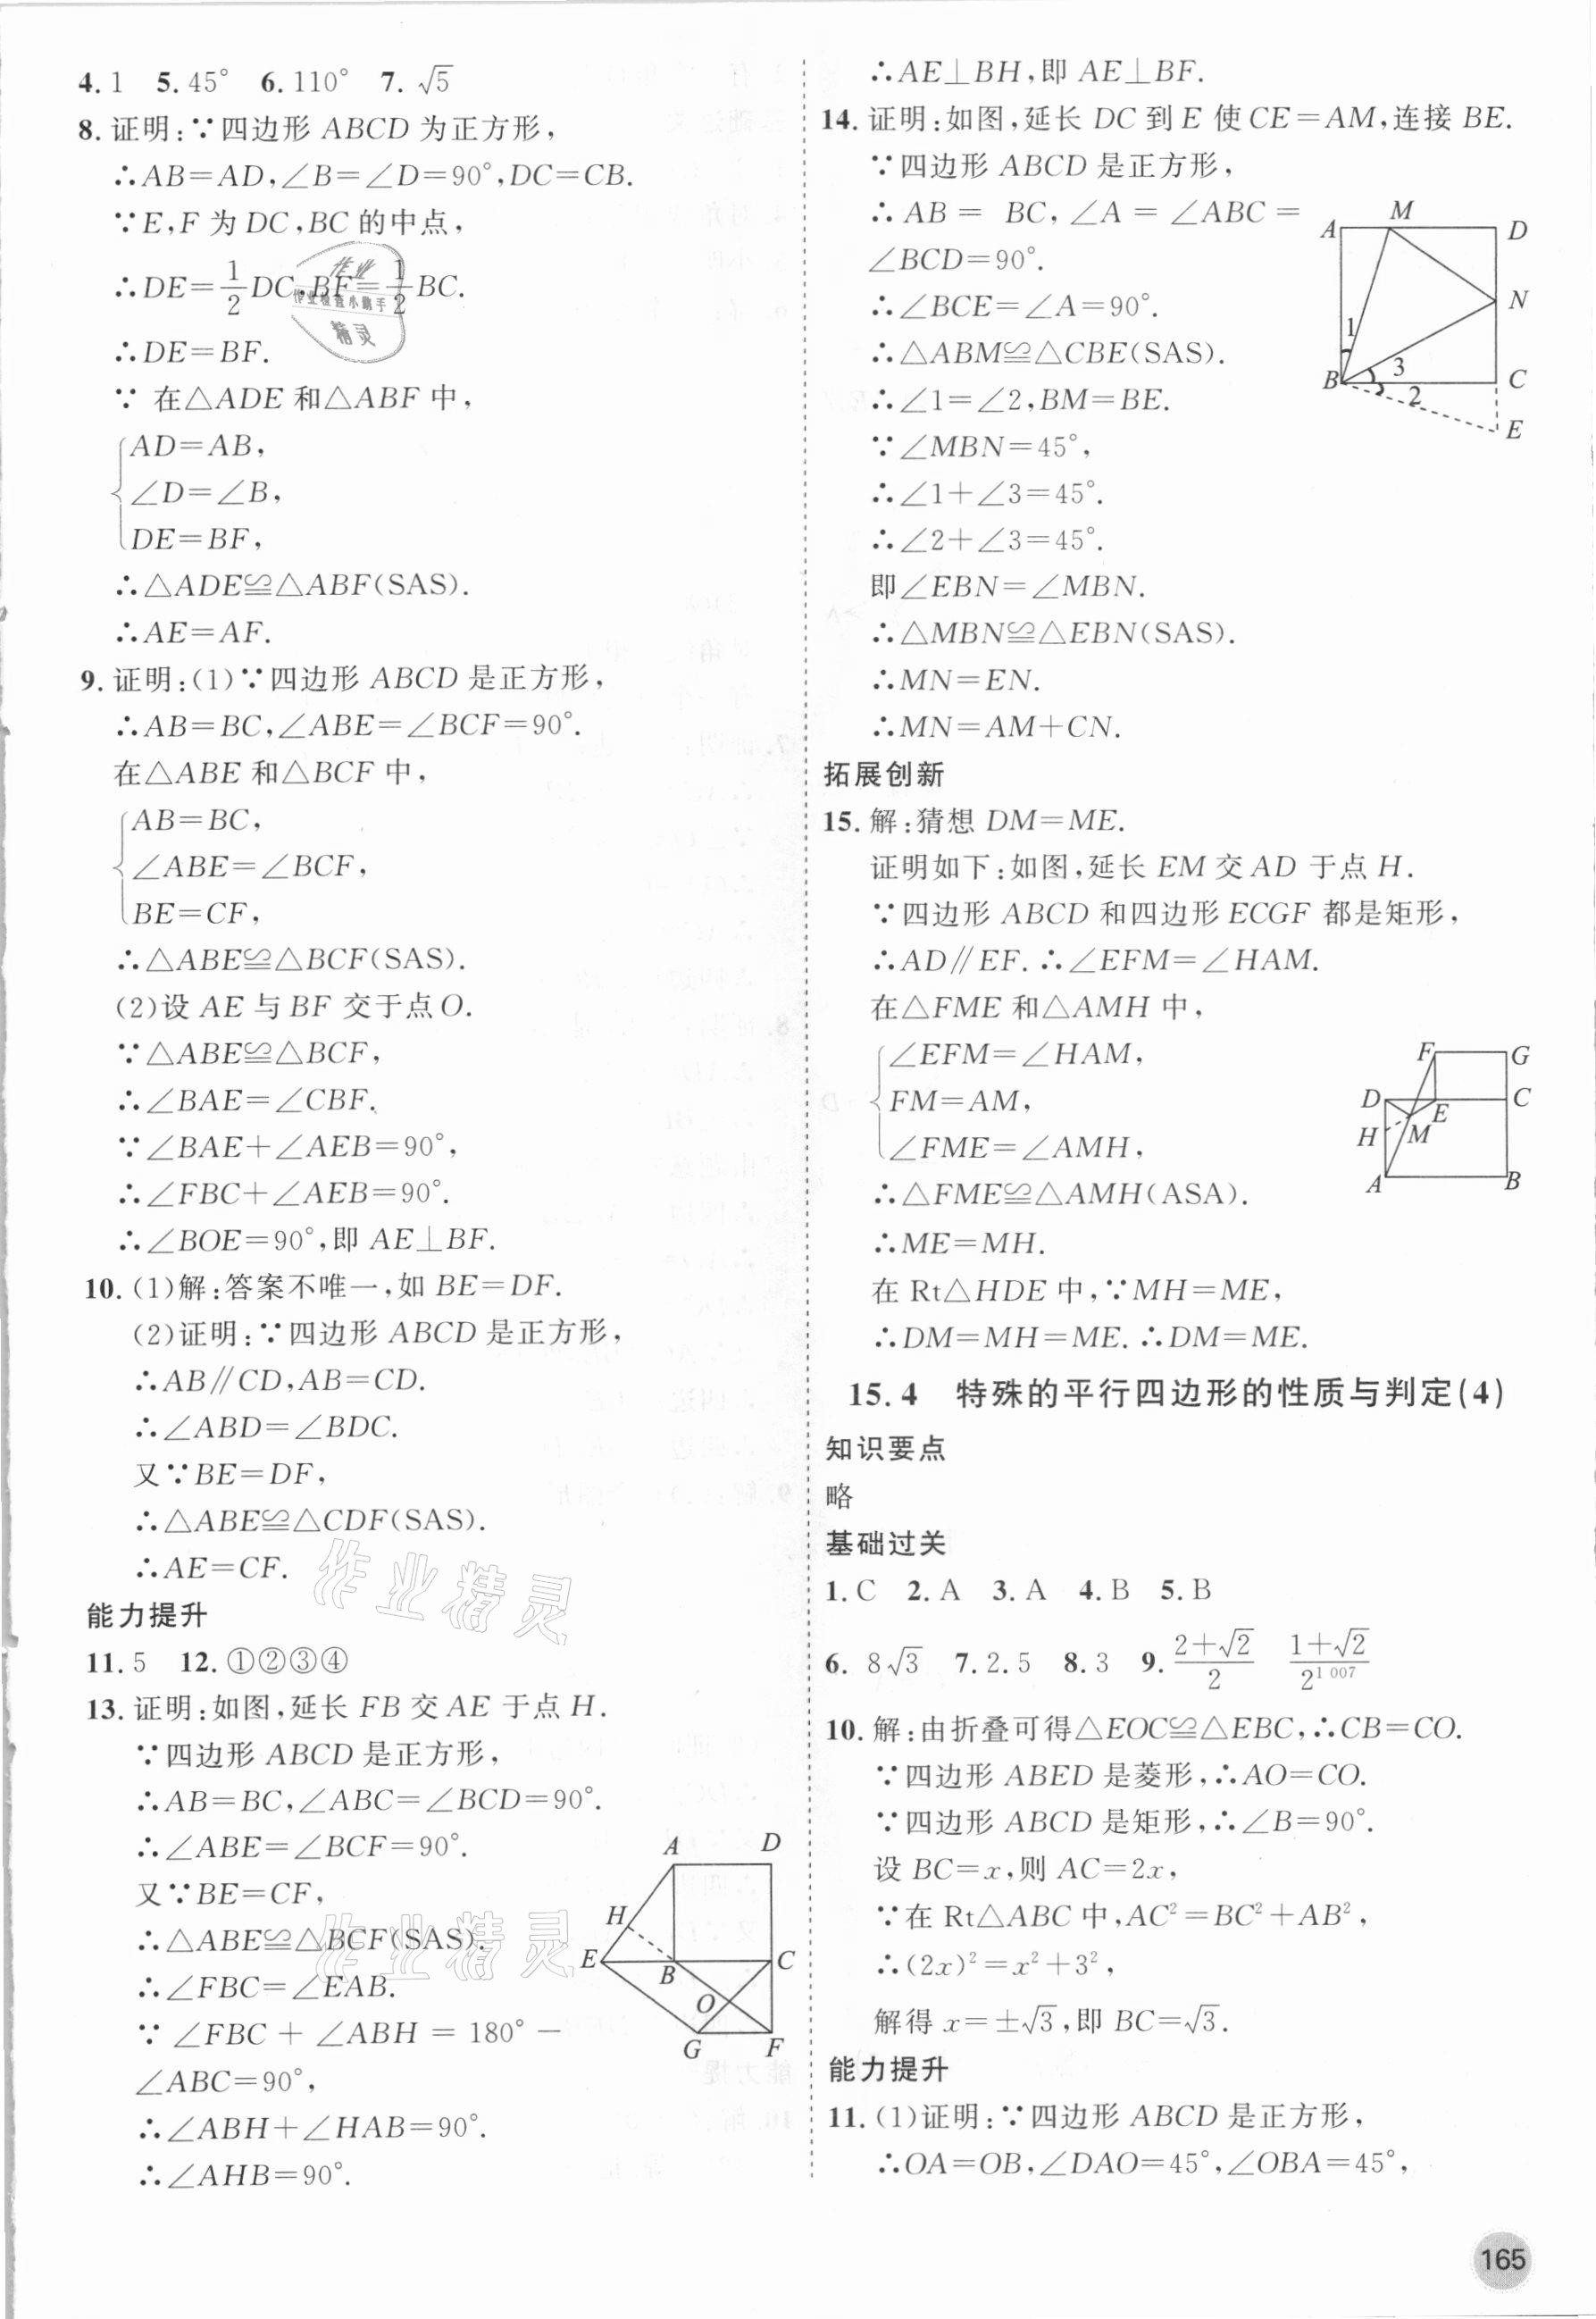 4. 1  5. 45°  6. 110°  7. √5
8. 证明:∵四边形 ABCD 为正方形,
∴AB=AD,∠B=∠D=90°,DC=CB.
∵E,F 为 DC,BC 的中点,
∴DE=1/2 DC,BF=1/2 BC.
∴DE=BF.
∵ 在△ADE 和△ABF 中,
AD=AB,
∠D=∠B,
DE=BF,
∴△ADE≌△ABF(SAS).
∴AE=AF.
9. 证明:(1)∵四边形 ABCD 是正方形,
∴AB=BC,∠ABE=∠BCF=90°.
在△ABE 和△BCF 中,
AB=BC,
∠ABE=∠BCF,
BE=CF,
∴△ABE≌△BCF(SAS).
(2)设 AE 与 BF 交于点 O.
∵△ABE≌△BCF,
∴∠BAE=∠CBF.
∵∠BAE+∠AEB=90°,
∴∠FBC+∠AEB=90°.
∴∠BOE=90°,即 AE⊥BF.
10. (1)解:答案不唯一,如 BE=DF.
(2)证明:∵四边形 ABCD 是正方形,
∴AB∥CD,AB=CD.
∴∠ABD=∠BDC.
又∵BE=DF,
∴△ABE≌△CDF(SAS).
∴AE=CF.
能力提升
11. 5  12. ①②③④
13. 证明:如图,延长 FB 交 AE 于点 H.
∵四边形 ABCD 是正方形,
∴AB=BC,∠ABC=∠BCD=90°.
∴∠ABE=∠BCF=90°.
又∵BE=CF,
∴△ABE≌△BCF(SAS).
∴∠FBC=∠EAB.
∵ ∠FBC + ∠ABH = 180° −
∠ABC=90°,
∴∠ABH+∠HAB=90°.
∴∠AHB=90°.
A D
H
E B C
O
G F
∴AE⊥BH,即 AE⊥BF.
14. 证明:如图,延长 DC 到 E 使 CE=AM,连接 BE.
∵四边形 ABCD 是正方形,
∴ AB = BC, ∠A = ∠ABC =
∠BCD=90°.
∴∠BCE=∠A=90°.
∴△ABM≌△CBE(SAS).
∴∠1=∠2,BM=BE.
∵∠MBN=45°,
∴∠1+∠3=45°.
∴∠2+∠3=45°.
即∠EBN=∠MBN.
∴△MBN≌△EBN(SAS).
∴MN=EN.
∴MN=AM+CN.
A M D
N
1
B 3 C
2
E
拓展创新
15. 解:猜想 DM=ME.
证明如下:如图,延长 EM 交 AD 于点 H.
∵四边形 ABCD 和四边形 ECGF 都是矩形,
∴AD∥EF.∴∠EFM=∠HAM.
在△FME 和△AMH 中,
∠EFM=∠HAM,
FM=AM,
∠FME=∠AMH,
∴△FME≌△AMH(ASA).
∴ME=MH.
在 Rt△HDE 中,∵MH=ME,
∴DM=MH=ME.∴DM=ME.
F G
D E C
H M
A B
15.4 特殊的平行四边形的性质与判定(4)
知识要点
略
基础过关
1. C  2. A  3. A  4. B  5. B
6. 8√3  7. 2.5  8. 3  9. (2+√2)/2  (1+√2)/2^1 007
10. 解:由折叠可得△EOC≌△EBC,∴CB=CO.
∵四边形 ABED 是菱形,∴AO=CO.
∵四边形 ABCD 是矩形,∴∠B=90°.
设 BC=x,则 AC=2x,
∵在 Rt△ABC 中,AC²=BC²+AB²,
∴(2x)²=x²+3²,
解得 x=±√3,即 BC=√3.
能力提升
11. (1)证明:∵四边形 ABCD 是正方形,
∴OA=OB,∠DAO=45°,∠OBA=45°,
165
作业
作业检查小助手
精灵
作业精灵
作业精灵